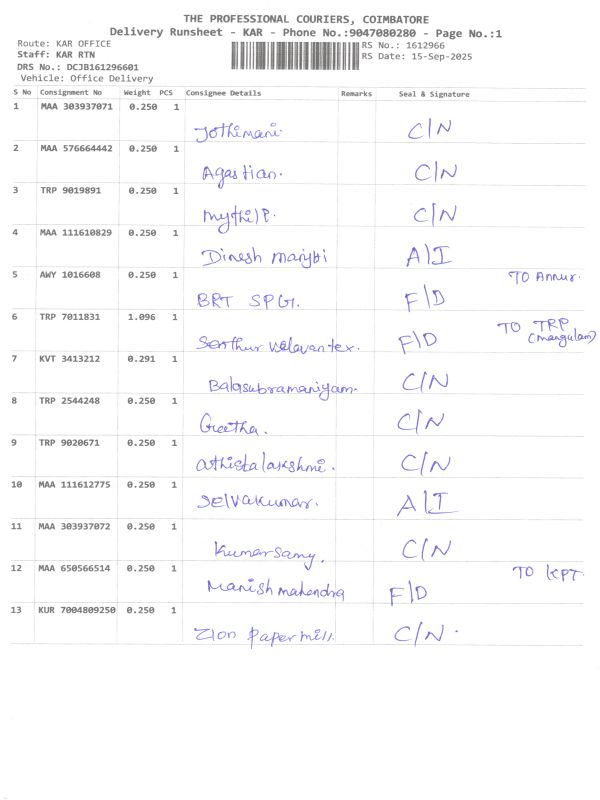 THE PROFESSIONAL COURIERS, COIMBATORE
Delivery Runsheet - KAR - Phone No.:9047080280 - Page No.:1
Route: KAR OFFICE
Staff: KAR RTN
DRS No.: DCJB161296601
Vehicle: Office Delivery
RS No.: 1612966
RS Date: 15-Sep-2025
S No Consignment No Weight PCS Consignee Details Remarks Seal & Signature
1 MAA 303937071 0.250 1
Jothimani C/N
2 MAA 576664442 0.250 1
Agastian. C/N
3 TRP 9019891 0.250 1
Mythili P. C/N
4 MAA 111610829 0.250 1
Dinesh A/I
5 AWY 1016608 0.250 1 TO Annur.
BRT SPG. F/D
6 TRP 7011831 1.096 1 TO TRP
(Mangulam)
Senthur velavantex. F/D
7 KVT 3413212 0.291 1
Balasubramaniyam. C/N
8 TRP 2544248 0.250 1
Geetha. C/N
9 TRP 9020671 0.250 1
athistalakshmi. C/N
10 MAA 111612775 0.250 1
Selvakumar. A/I
11 MAA 303937072 0.250 1
Kumarsamy. C/N
12 MAA 650566514 0.250 1 TO KPT.
Manish mahendra F/D
13 KUR 7004809250 0.250 1
Zion Papermill. C/N.